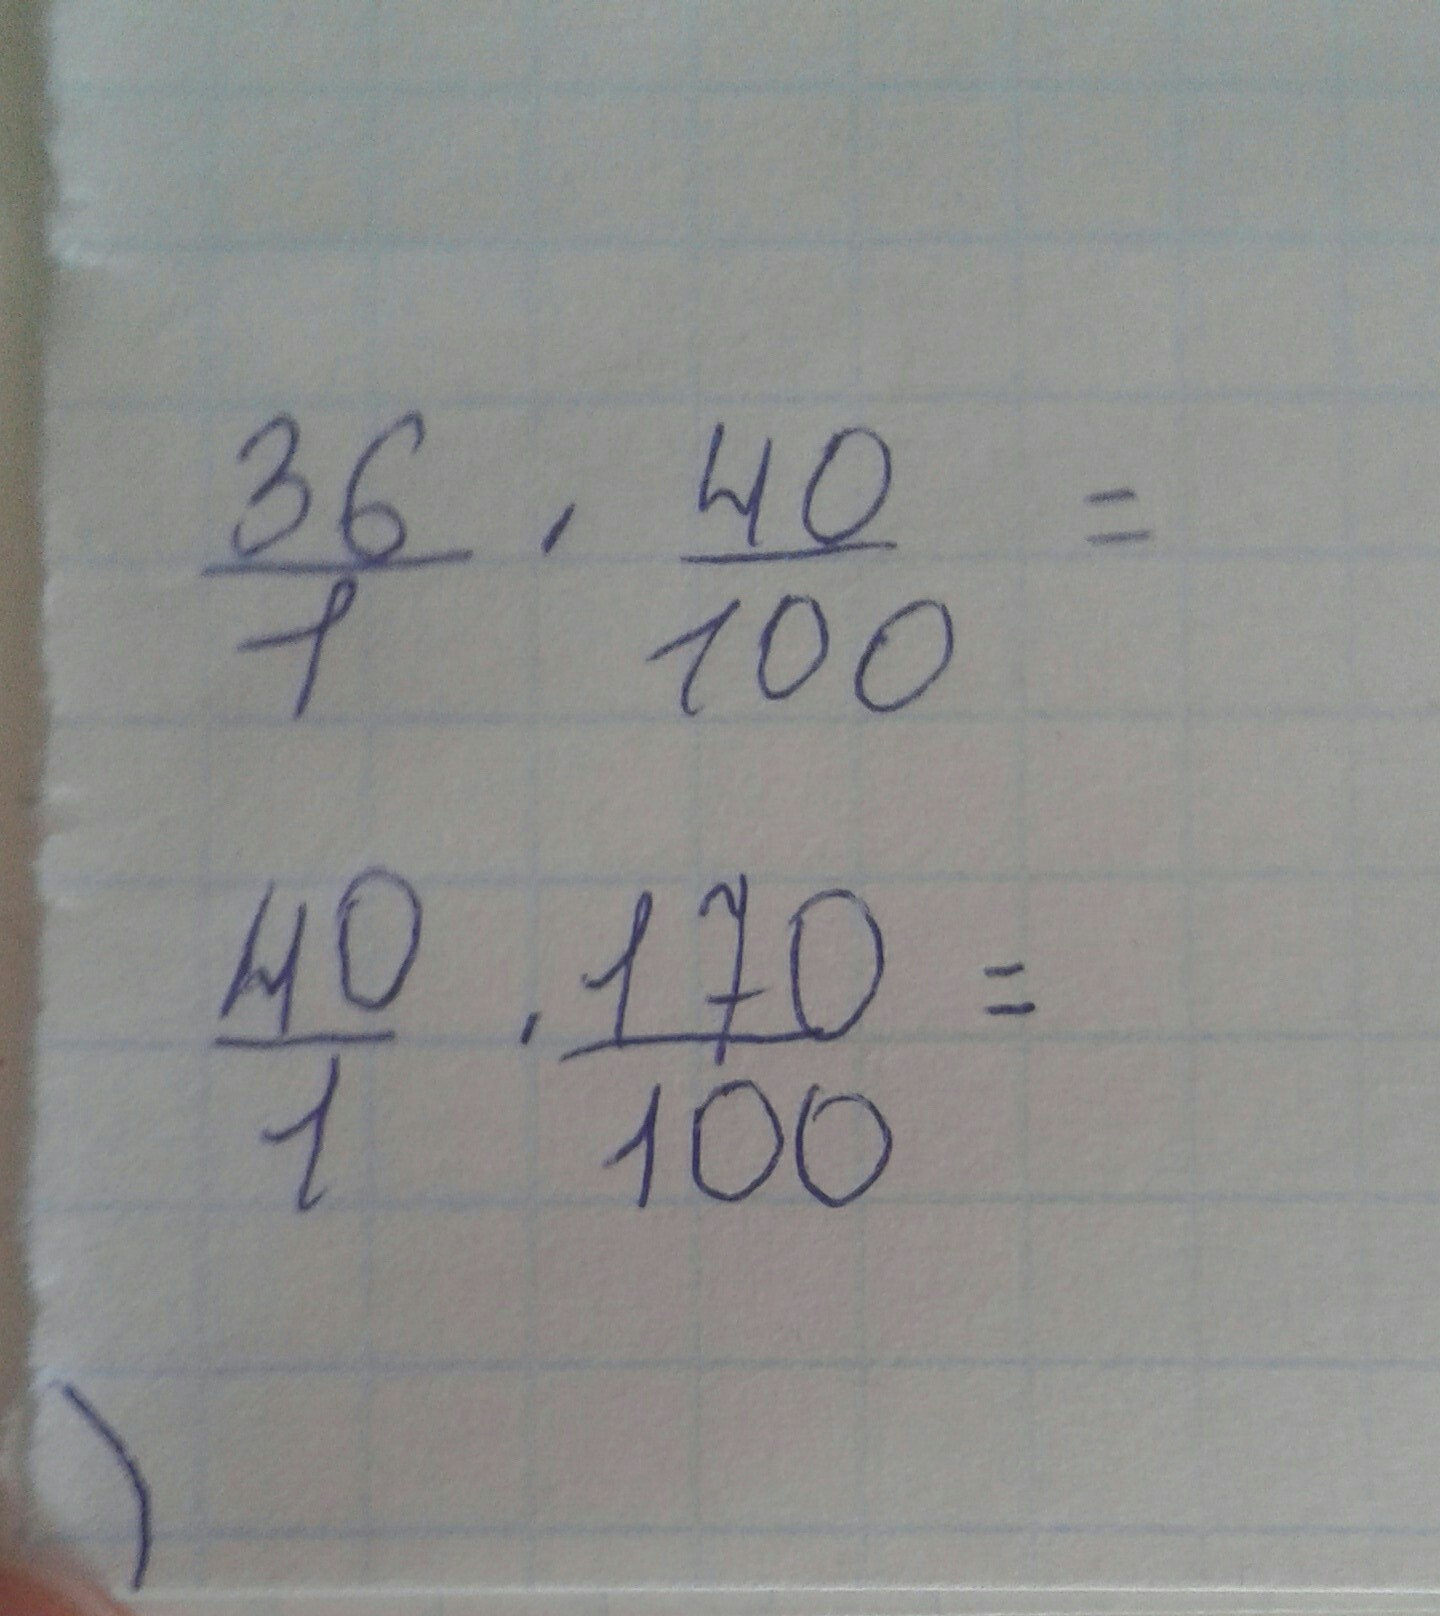 36/1 · 40/100 =
40/1 · 170/100 =
)